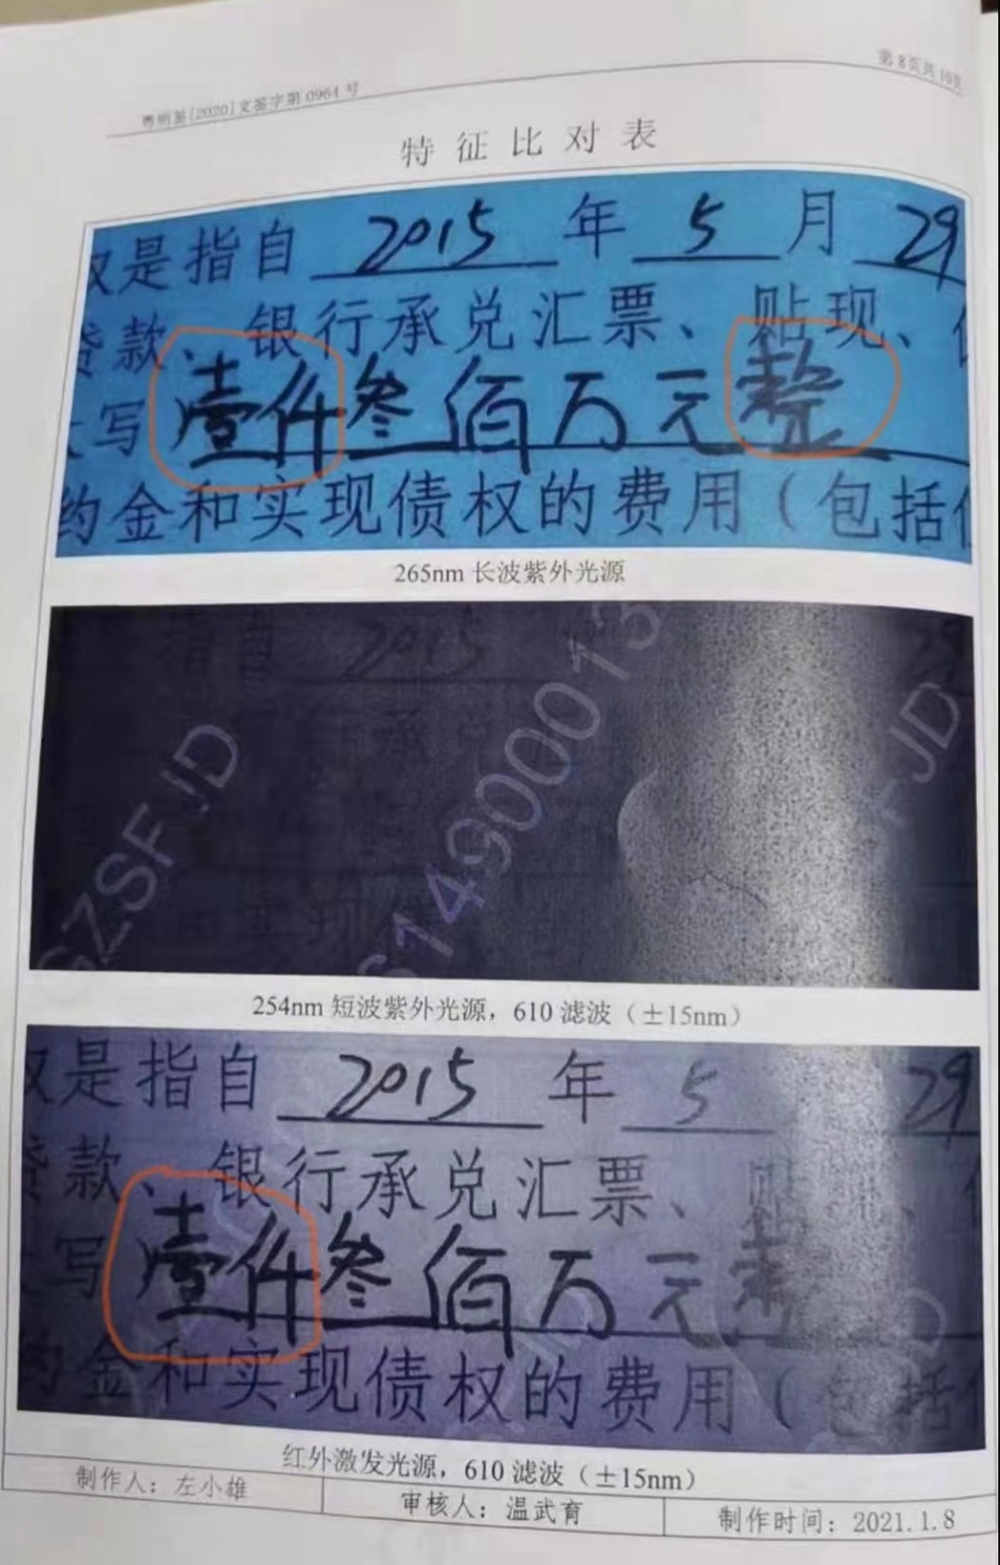 粤明鉴[2020]文鉴字第0964号
第8页共10页
特征比对表
是指自 2015 年 5 月 29
贷款、银行承兑汇票、贴现、
写 壹仟叁佰万元整
约金和实现债权的费用（包括
265nm 长波紫外光源
指自 2015 29
承兑
实现
GZSFJD
614900013
JD
254nm 短波紫外光源，610 滤波（±15nm）
是指自 2015 年 5 29
贷款、银行承兑汇票、贴
写 壹仟叁佰万元整
约金和实现债权的费用（包括
红外激发光源，610 滤波（±15nm）
制作人：左小雄
审核人：温武育
制作时间：2021.1.8